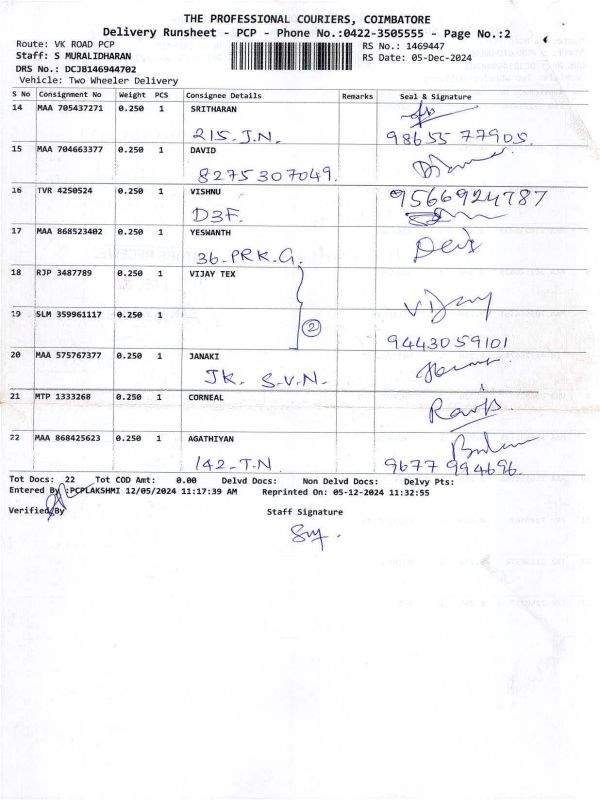 THE PROFESSIONAL COURIERS, COIMBATORE
Delivery Runsheet - PCP - Phone No.:0422-3505555 - Page No.:2
Route: VK ROAD PCP RS No.: 1469447
Staff: S MURALIDHARAN RS Date: 05-Dec-2024
DRS No.: DCJB146944702
Vehicle: Two Wheeler Delivery
S No Consignment No Weight PCS Consignee Details Remarks Seal & Signature
14 MAA 705437271 0.250 1 SRITHARAN
215. J.N. 98655 77905.
15 MAA 704663377 0.250 1 DAVID
8275307049.
16 TVR 4250524 0.250 1 VISHNU 9566924787
D3F.
17 MAA 868523402 0.250 1 YESWANTH
36-PRK.G.
18 RJP 3487789 0.250 1 VIJAY TEX
Vijay
19 SLM 359961117 0.250 1
2
9443059101
20 MAA 575767377 0.250 1 JANAKI
JK. S.V.N.
21 MTP 1333268 0.250 1 CORNEAL
22 MAA 868425623 0.250 1 AGATHIYAN
142-T.N 9677 994696.
Tot Docs: 22 Tot COD Amt: 0.00 Delvd Docs: Non Delvd Docs: Delvy Pts:
Entered By :PCPLAKSHMI 12/05/2024 11:17:39 AM Reprinted On: 05-12-2024 11:32:55
Verified By Staff Signature